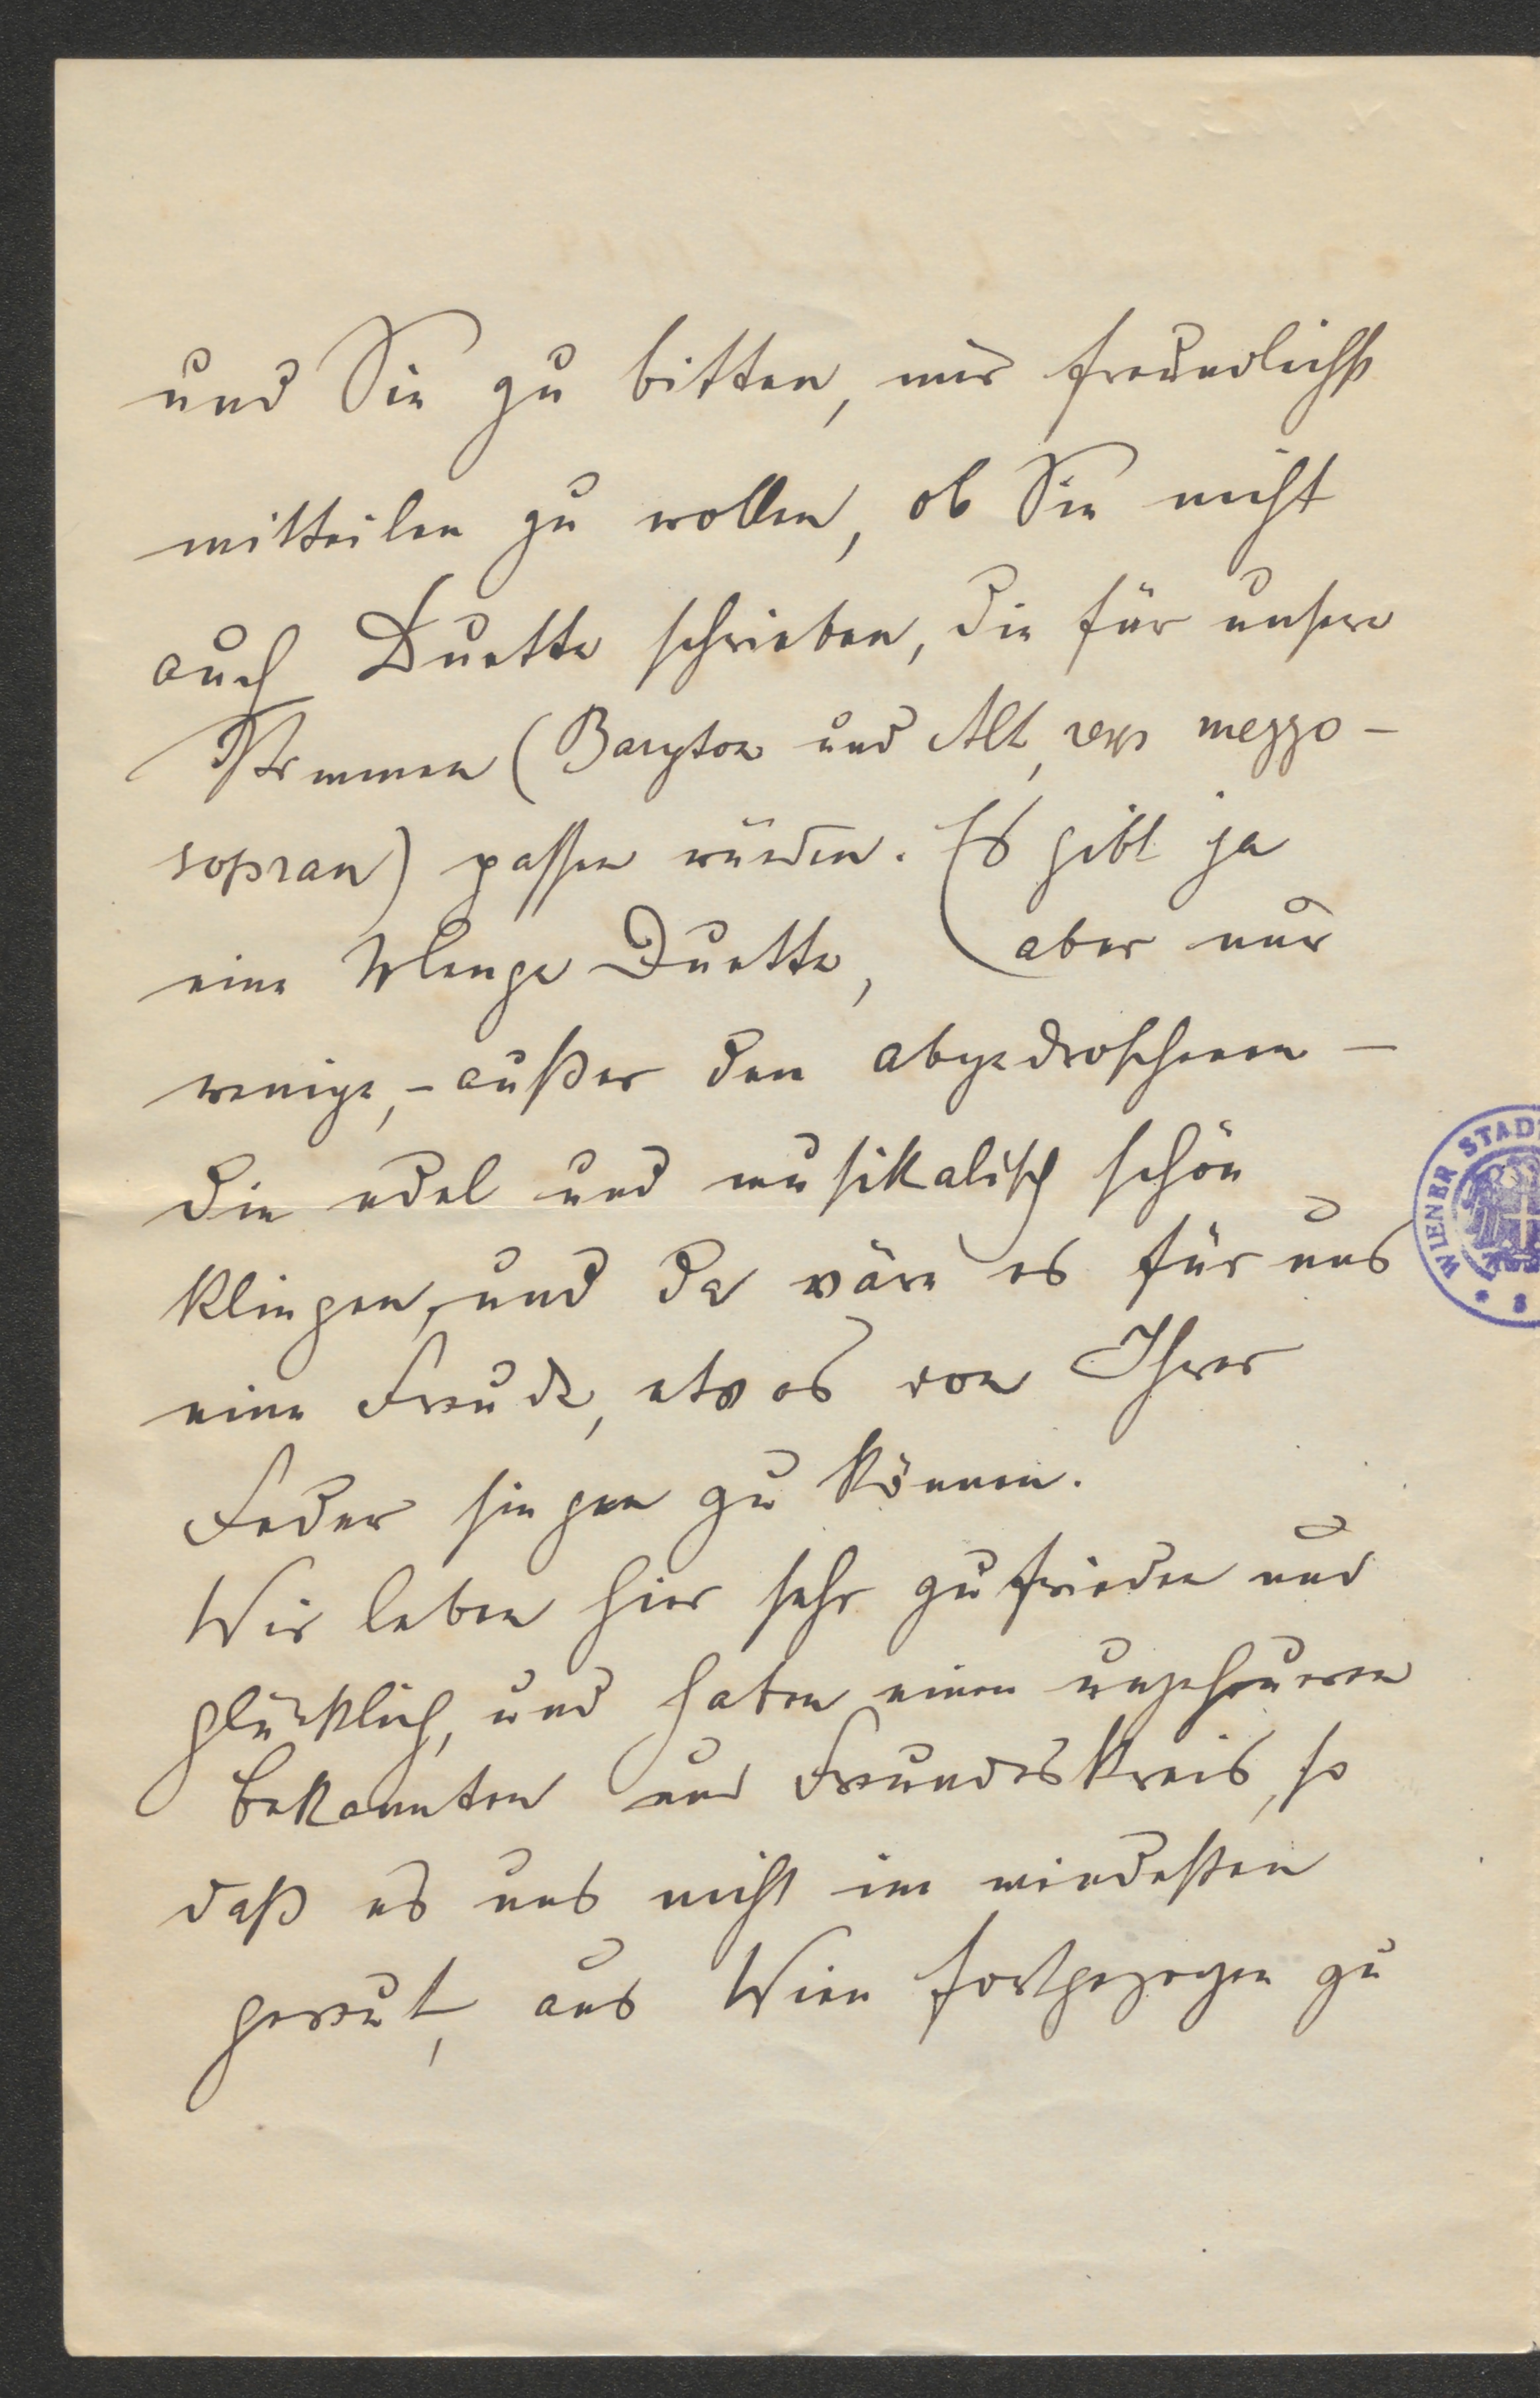 und Sie zu bitten, mir freundlichst
mitteilen zu wollen, ob Sie nicht
auch Duette schrieben, die für unsere
Stimmen (Baryton und Alt, resp mezzo-
sopran) passen würden. Es gibt ja
eine Menge Duette, aber nur
wenige, - außer den abgedroschenen -
die edel und musikalisch schön
klingen, und da wäre es für uns
eine Freude, etwas von Ihrer
Feder singen zu können.
Wir leben hier sehr zufrieden und
glücklich, und haben einen ungeheueren
Bekannten und Freundeskreis, so
daß es uns nicht im mindesten
gereut, aus Wien fortgezogen zu
WIENER STAD